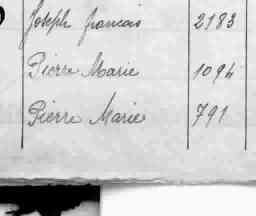 Joseph francois 2183
Pierre Marie 1094
Pierre Marie 791